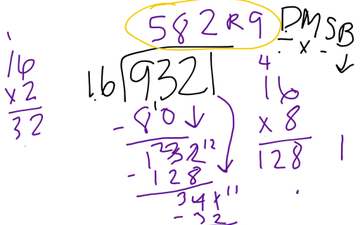 582 R 9
DMSB
x -
16
x 2
32
16 9321
- 80
1
1232 12
- 128
34 x 11
- 32
4
16
x 8
128
1